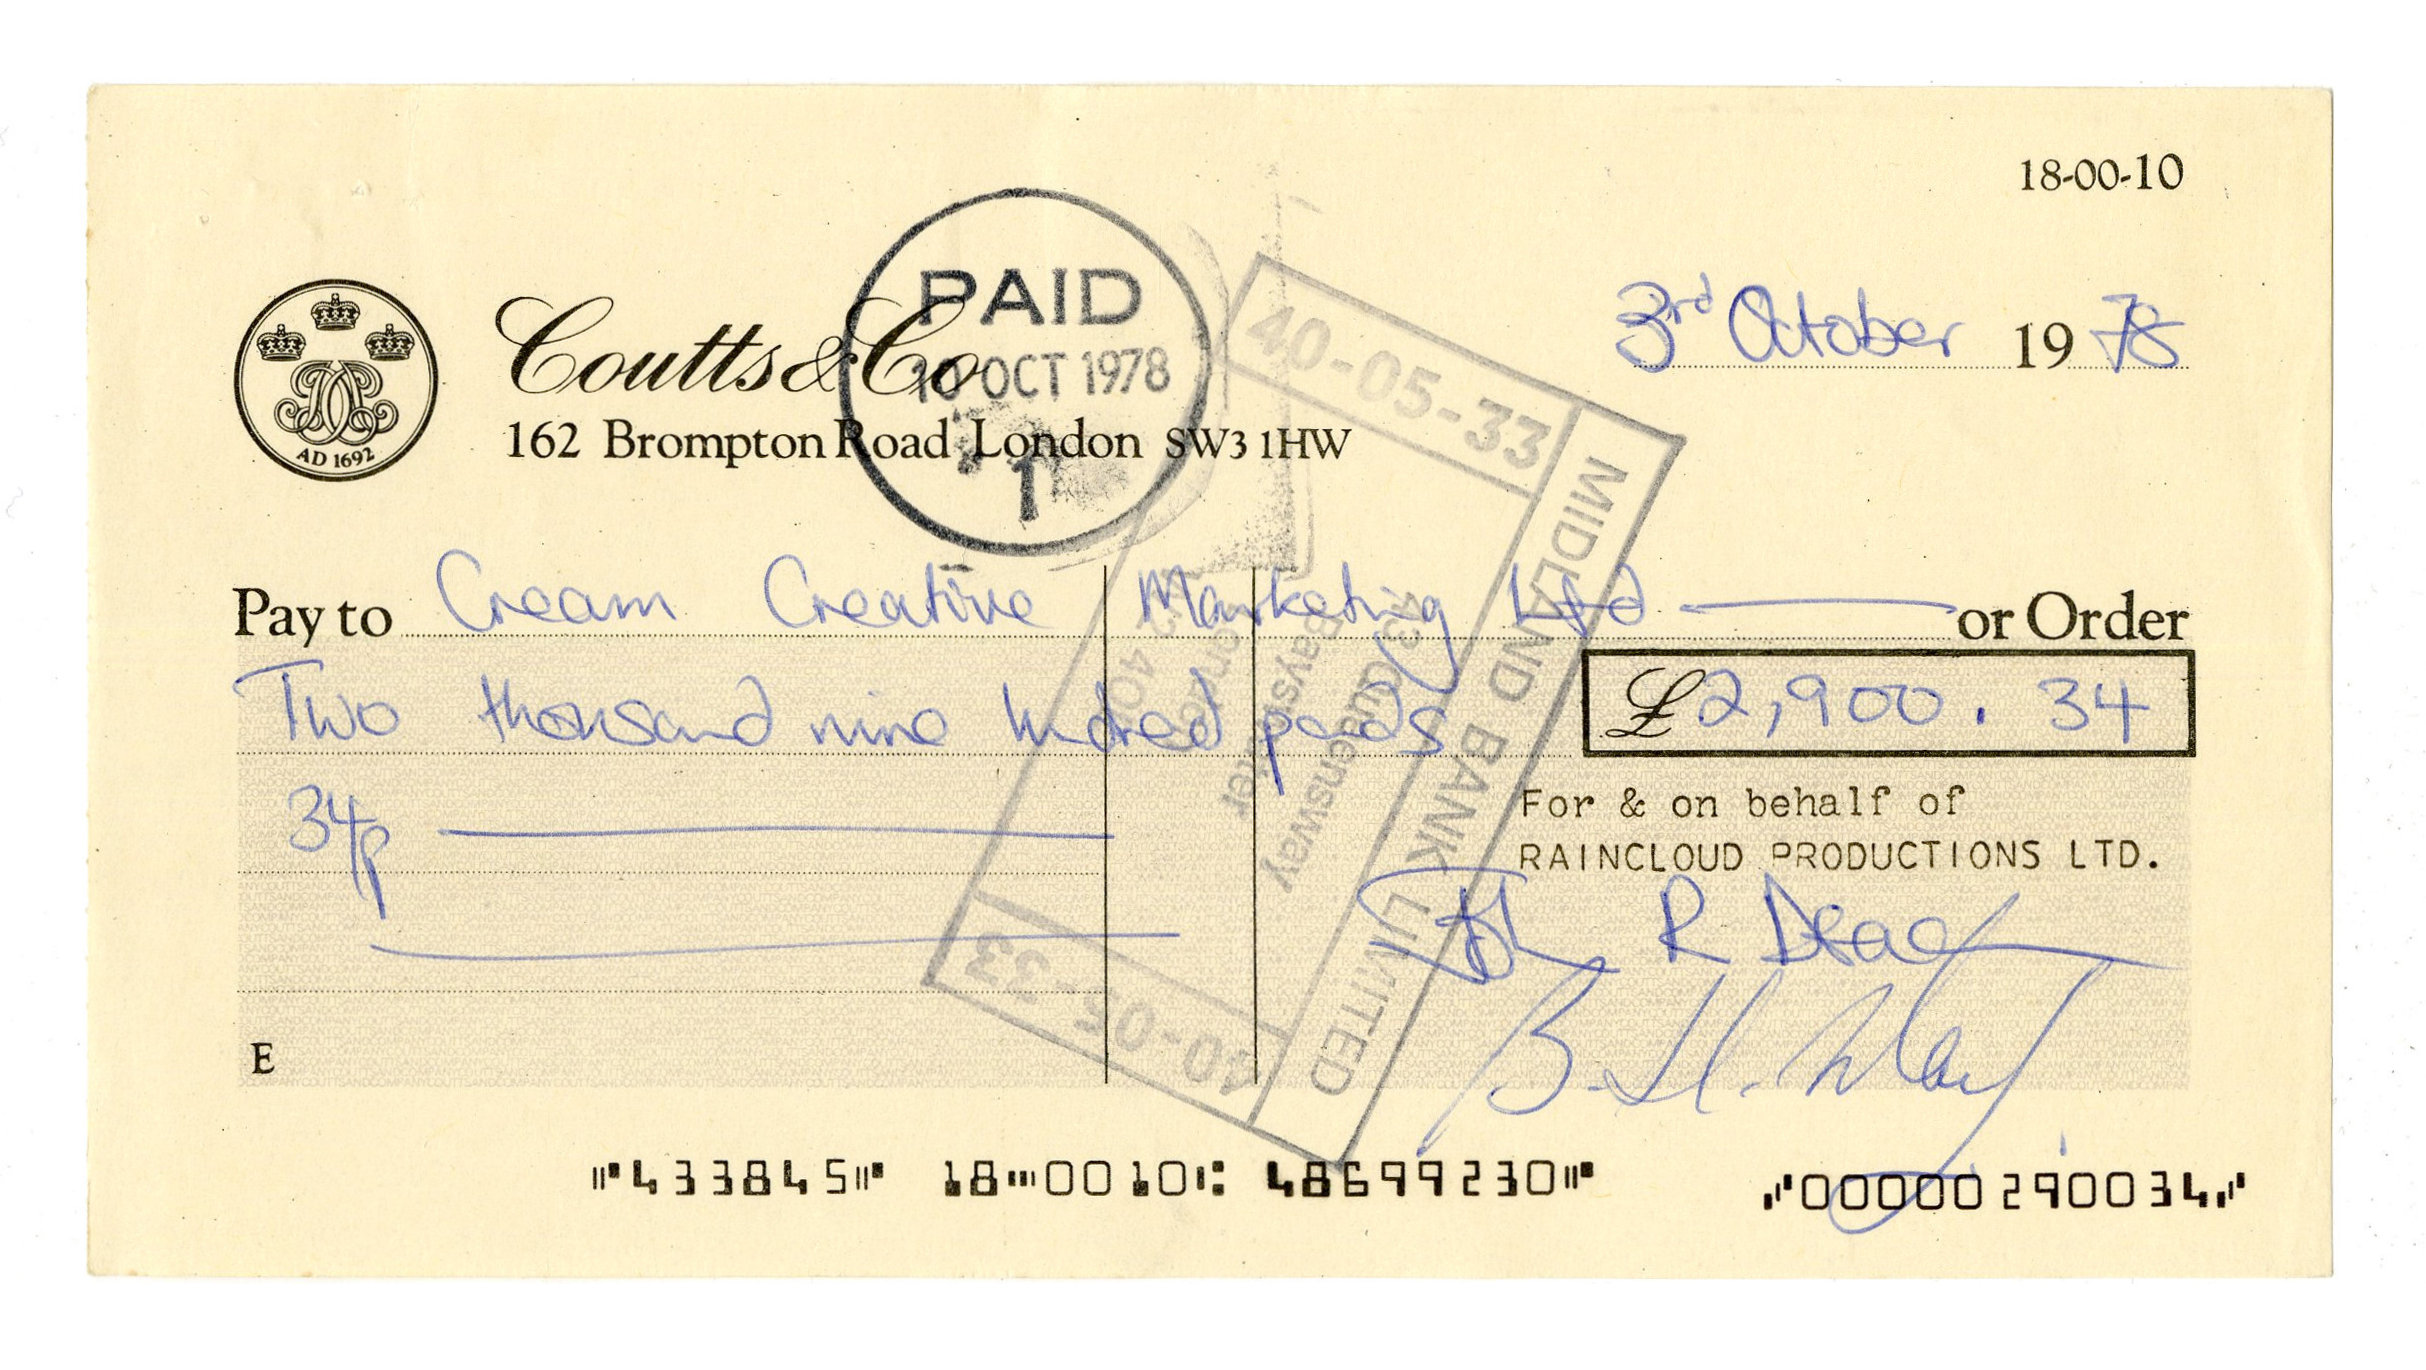 18-00-10
AD 1692
Coutts & Co
162 Brompton Road London SW3 1HW
PAID
10 OCT 1978
1
3rd October 1978
40-05-33
MIDLAND BANK LIMITED
Queensway
40-05-33
Pay to Cream Creative Marketing Ltd or Order
Two thousand nine hundred pounds
£2,900.34
34p
For & on behalf of
RAINCLOUD PRODUCTIONS LTD.
John R Deacon
B. H. May
E
433845 18 0010 48699230 00000290034